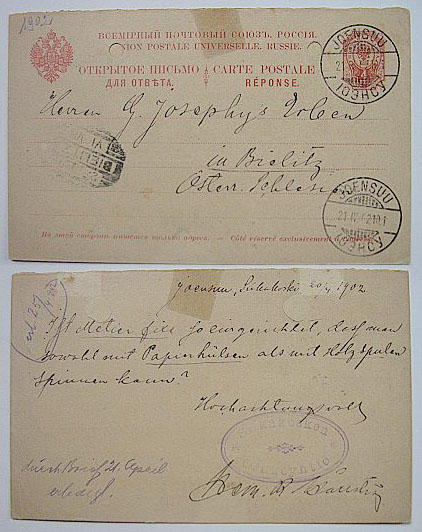 1902
ВСЕМІРНЫЙ ПОЧТОВЫЙ СОЮЗЪ. РОССІЯ.
UNION POSTALE UNIVERSELLE. RUSSIE.
ОТКРЫТОЕ ПИСЬМО CARTE POSTALE
ДЛЯ ОТВѢТА. RÉPONSE.
JOENSUU
ІОЭНСУ
Herren G. Josephys Erben
in Bielitz
Österr. Schlesien
BIELITZ
JOENSUU
21. IV. 02 10 1
ІОЭНСУ
На этой сторонѣ пишется только адресъ. – Côté réservé exclusivement à l'adresse.
Joensuu, 20/4 1902
Ist Metier fixe so eingerichtet, dass man
sowohl mit Papierhülsen als mit Holzspulen
spinnen kann?
Hochachtungsvoll
durch Brief 21. April
erledigt.